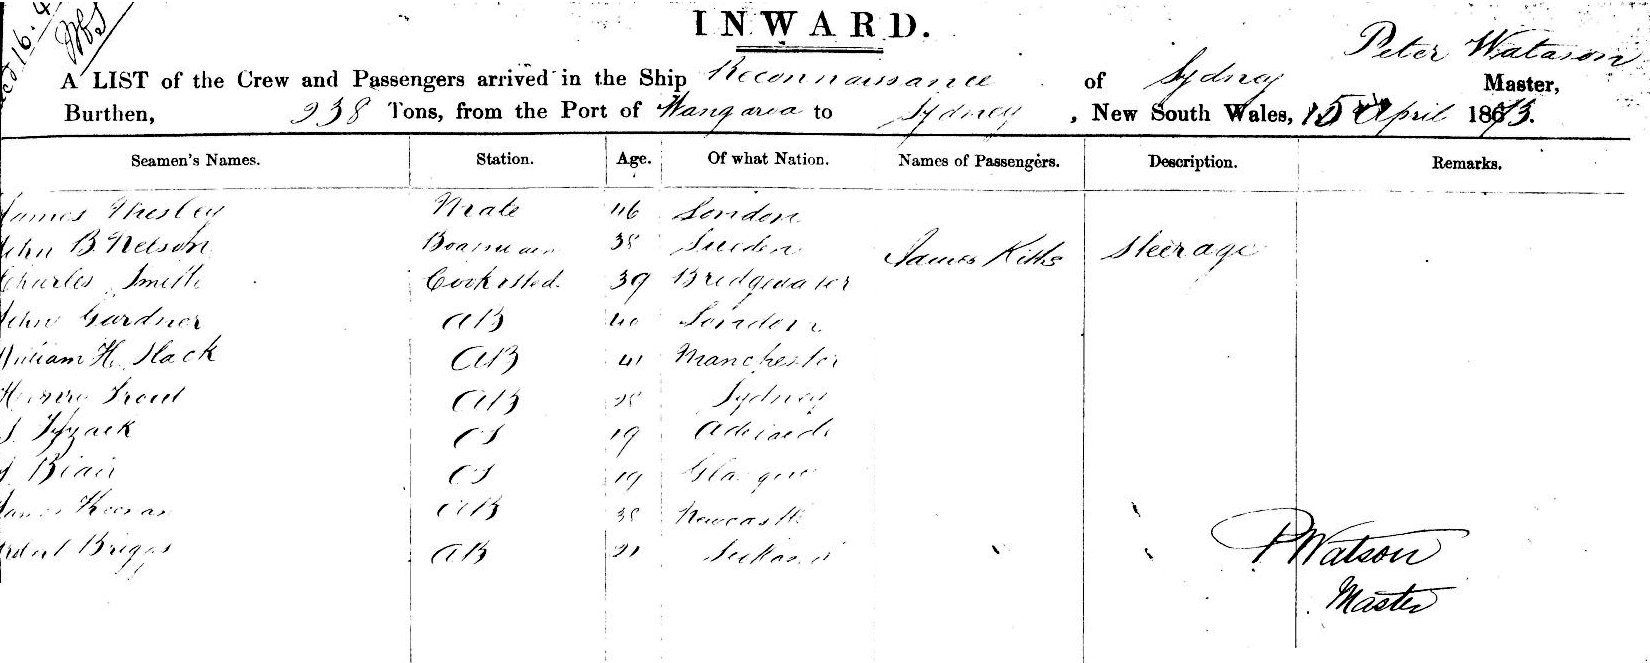 INWARD.
Peter Watason
A LIST of the Crew and Passengers arrived in the Ship Reconnaissance of Sydney Master,
Burthen, 238 Tons, from the Port of Wangarea to Sydney, New South Wales, 15 April 1873.
Seamen's Names. Station. Age. Of what Nation. Names of Passengers. Description. Remarks.
James Mate 46 London
John B Nelson 38 Sweden James Kitts Steerage
Charles Smith Cook & Std. 39 Bridgewater
John Gardner AB 40 London
William H. Slack AB 41 Manchester
Trout AB 28 Sydney
J. Tyzack OS 19 Adelaide
J. Blair OS 19 Glasgow
James Keenan AB 38 Newcastle
Briggs AB 21
P Watson
Master